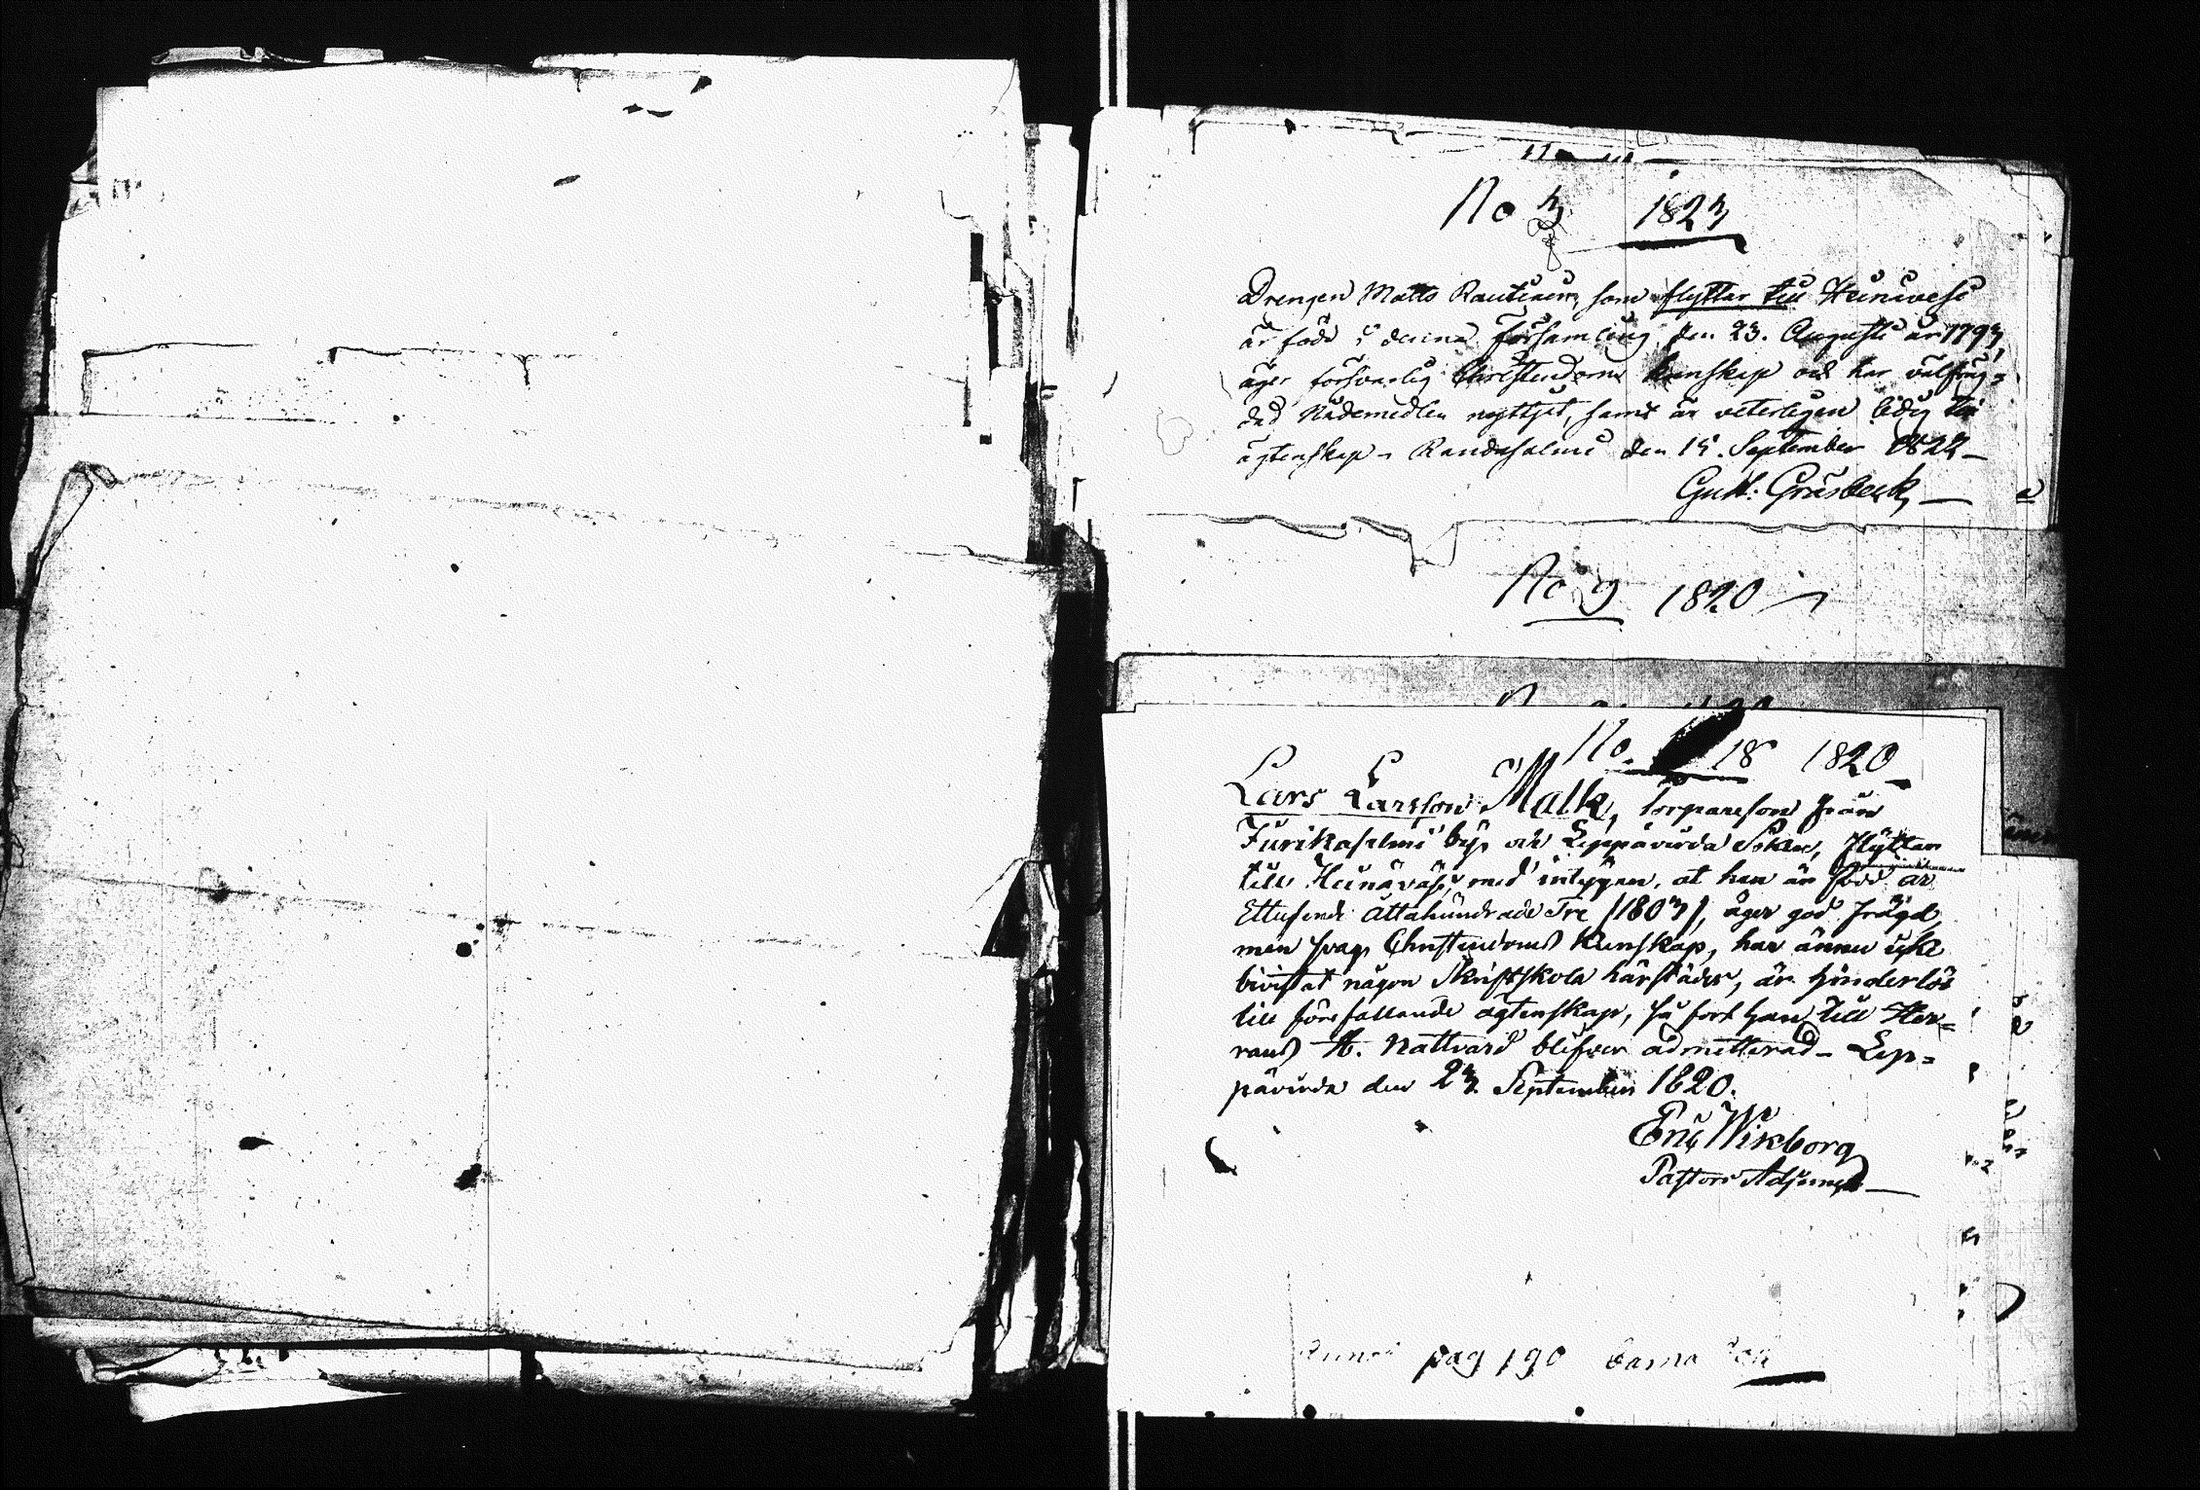 No 3 1823
Drengen Matts Rautiain, som flyttar till Heinävesi
är född i denna församling den 23. Augusti år 1793,
äger försvarlig Christendoms kunskap och har välfräg=
dad Nådemedlen nyttjat, samt är veterligen ledig till
ägtenskap. Randasalmi den 15. September 1822
Gust: Gråsbeck
No 9 1820
No. 18 1820
Lars Larsson Malk, torpareson från
Jurikasalmi by och Leppävirda Sokn, flyttar
till Heinäväsi med intygan, at han är född år
Ettusende åttahundrade Tre (1803), äger god frägd
men svag Christendoms Kunskap, har ännu icke
bivistat någon Skriftskola härstädes, är hinderlös
till förefallande ägtenskap, så fort han till Her=
rans H. Nattvard blifver admitterad. Lep=
pävirda den 23 September 1820.
Eric Wikborg
Pastors Adjunct
pag 190 barna bok